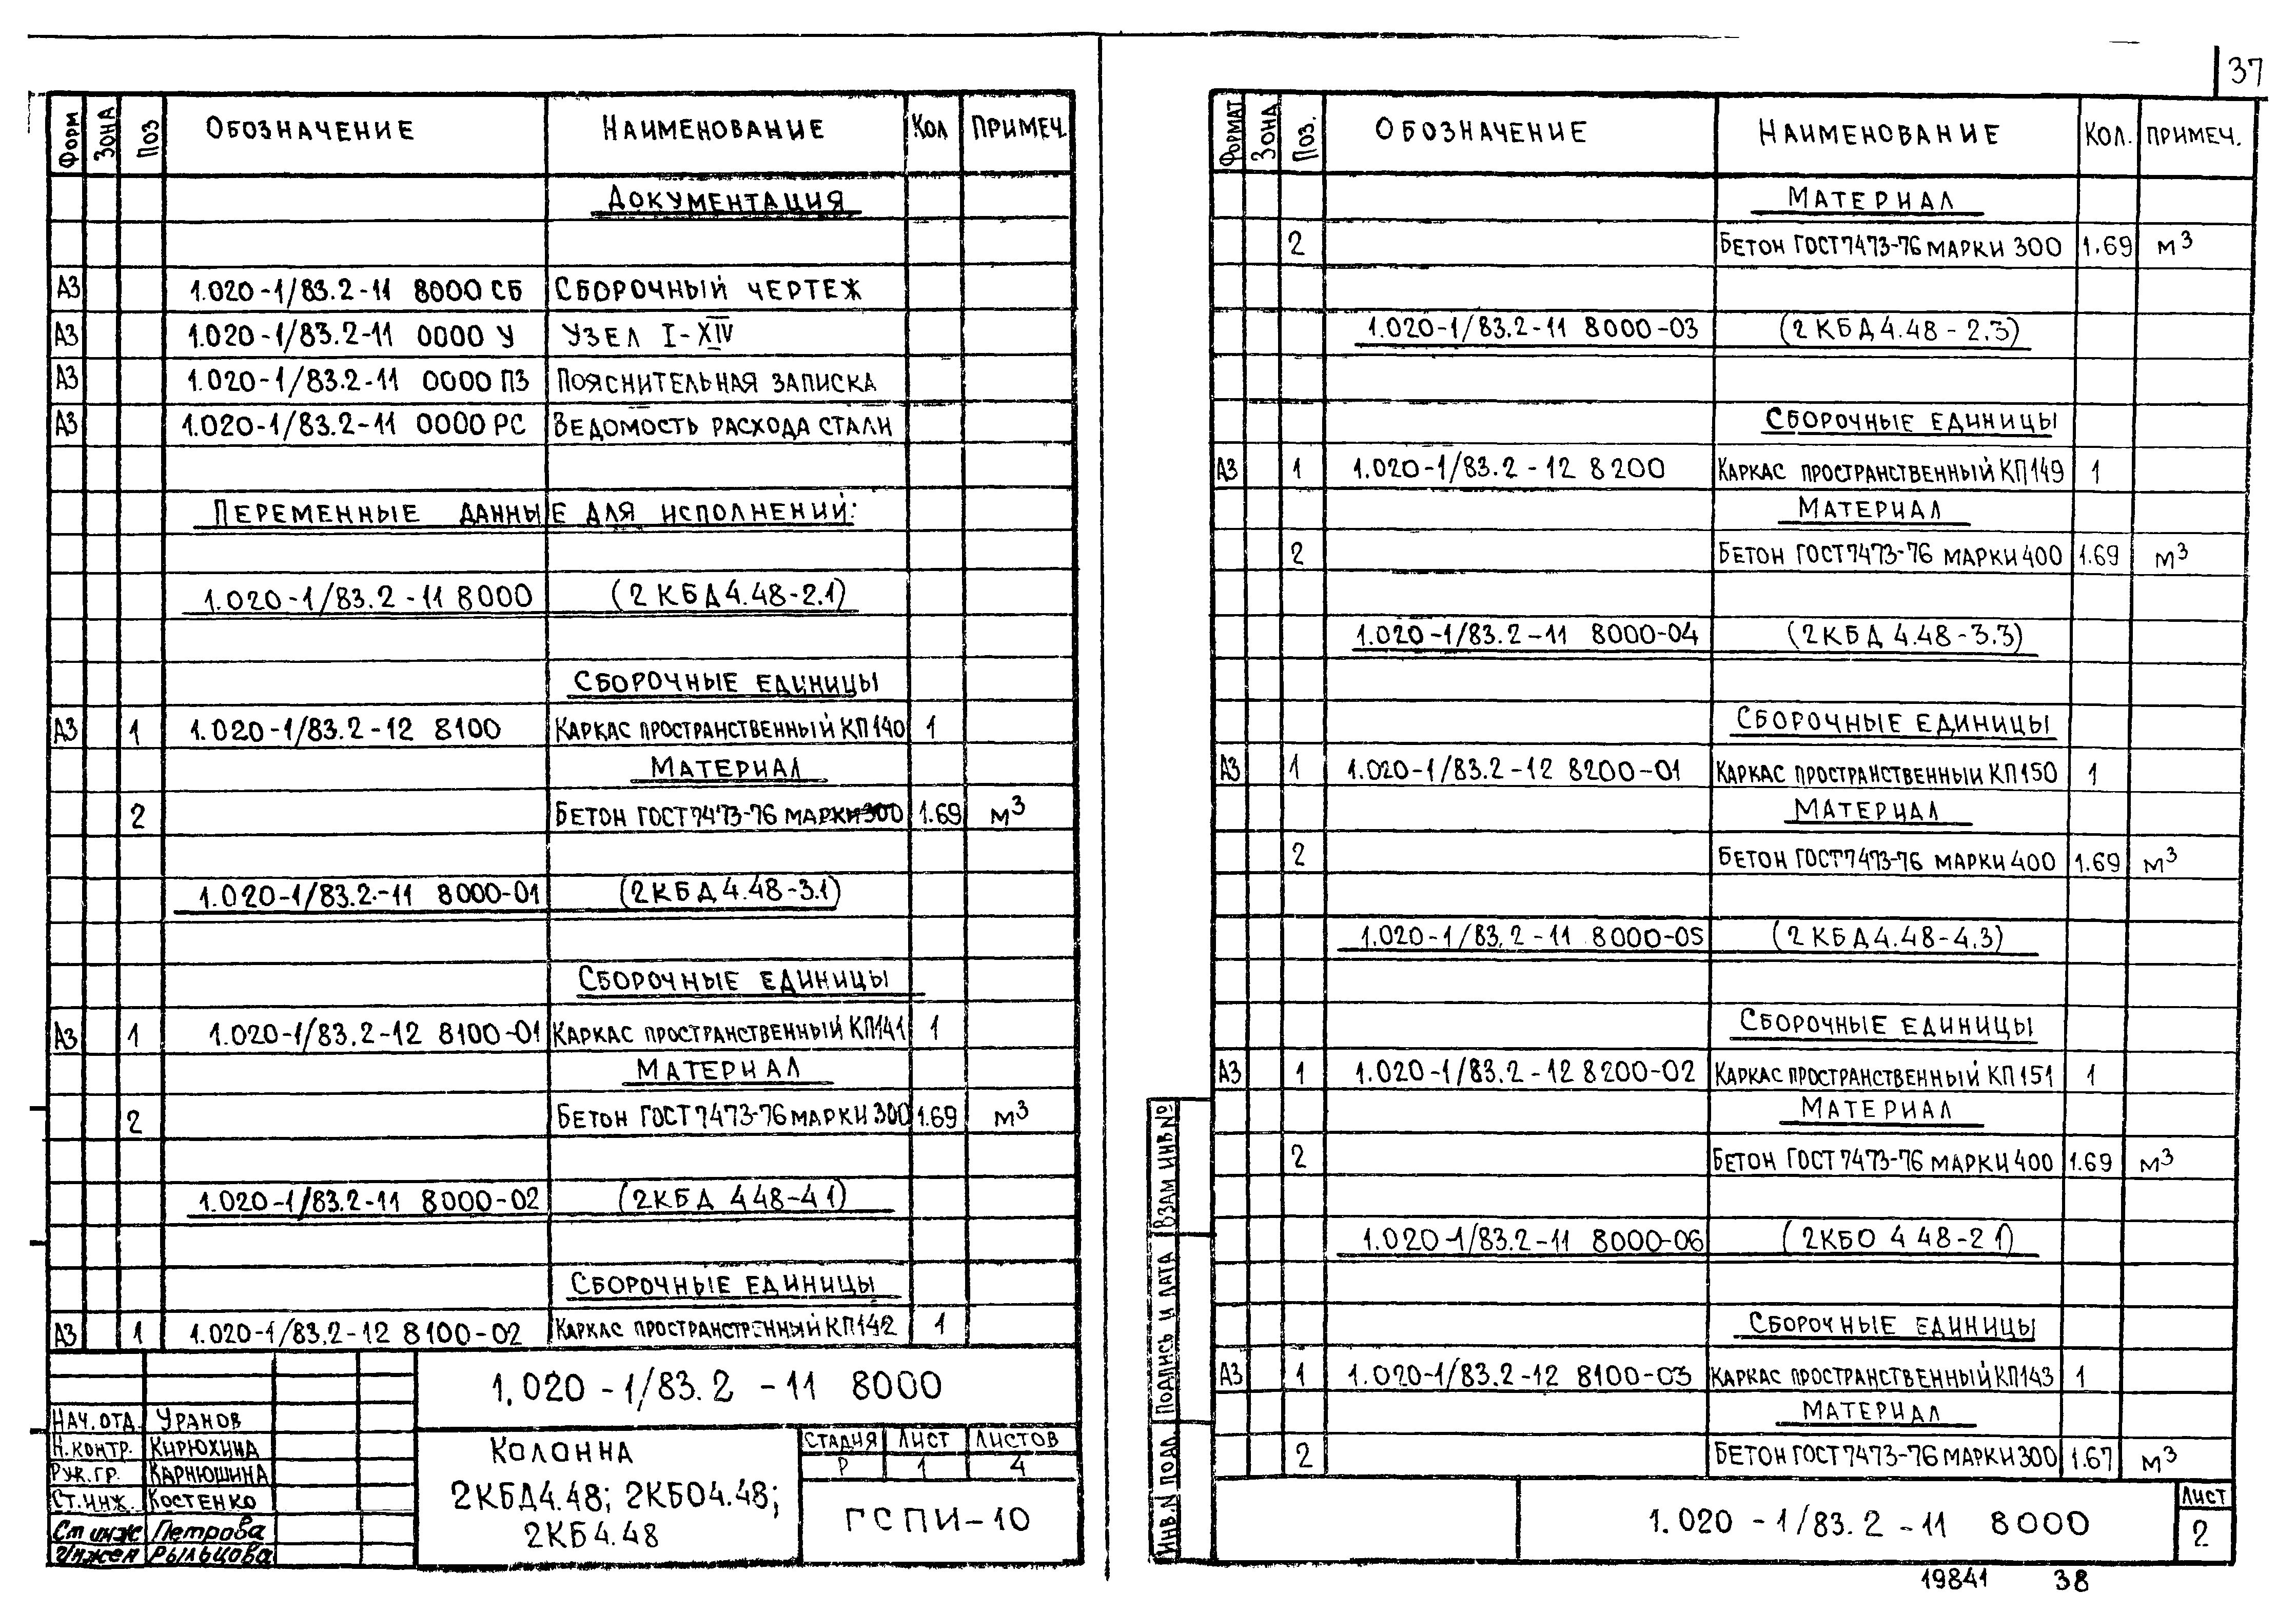 37
Форм Зона Поз Обозначение Наименование Кол Примеч.
Документация
А3 1.020-1/83.2-11 8000 СБ Сборочный чертеж
А3 1.020-1/83.2-11 0000 У Узел I-XIV
А3 1.020-1/83.2-11 0000 ПЗ Пояснительная записка
А3 1.020-1/83.2-11 0000 РС Ведомость расхода стали
Переменные данные для исполнений:
1.020-1/83.2-11 8000 (2КБД4.48-2.1)
Сборочные единицы
А3 1 1.020-1/83.2-12 8100 Каркас пространственный КП140 1
Материал
2 Бетон ГОСТ7473-76 марки 300 1.69 м³
1.020-1/83.2-11 8000-01 (2КБД4.48-3.1)
Сборочные единицы
А3 1 1.020-1/83.2-12 8100-01 Каркас пространственный КП141 1
Материал
2 Бетон ГОСТ7473-76 марки 300 1.69 м³
1.020-1/83.2-11 8000-02 (2КБД 4 48-4 1)
Сборочные единицы
А3 1 1.020-1/83.2-12 8100-02 Каркас пространственный КП142 1
1.020-1/83.2-11 8000
Нач.отд. Уранов
Н.контр. Кирюхина
Рук.гр. Карнюшина
Ст.инж. Костенко
Ст инж Петрова
Инжен Рыльцова
Колонна
2КБД4.48; 2КБО4.48;
2КБ4.48
Стадия Лист Листов
Р 1 4
ГСПИ-10
Формат Зона Поз. Обозначение Наименование Кол. Примеч.
Материал
2 Бетон ГОСТ7473-76 марки 300 1.69 м³
1.020-1/83.2-11 8000-03 (2КБД4.48-2.3)
Сборочные единицы
А3 1 1.020-1/83.2-12 8200 Каркас пространственный КП149 1
Материал
2 Бетон ГОСТ7473-76 марки 400 1.69 м³
1.020-1/83.2-11 8000-04 (2КБД 4.48-3.3)
Сборочные единицы
А3 1 1.020-1/83.2-12 8200-01 Каркас пространственный КП150 1
Материал
2 Бетон ГОСТ7473-76 марки 400 1.69 м³
1.020-1/83.2-11 8000-05 (2КБД4.48-4.3)
Сборочные единицы
А3 1 1.020-1/83.2-12 8200-02 Каркас пространственный КП151 1
Материал
2 Бетон ГОСТ7473-76 марки 400 1.69 м³
1.020-1/83.2-11 8000-06 (2КБО 4 48-2 1)
Сборочные единицы
А3 1 1.020-1/83.2-12 8100-03 Каркас пространственный КП143 1
Материал
2 Бетон ГОСТ7473-76 марки 300 1.67 м³
Инв.N подл. Подпись и дата Взам инв №
1.020-1/83.2-11 8000
Лист
2
19841 38